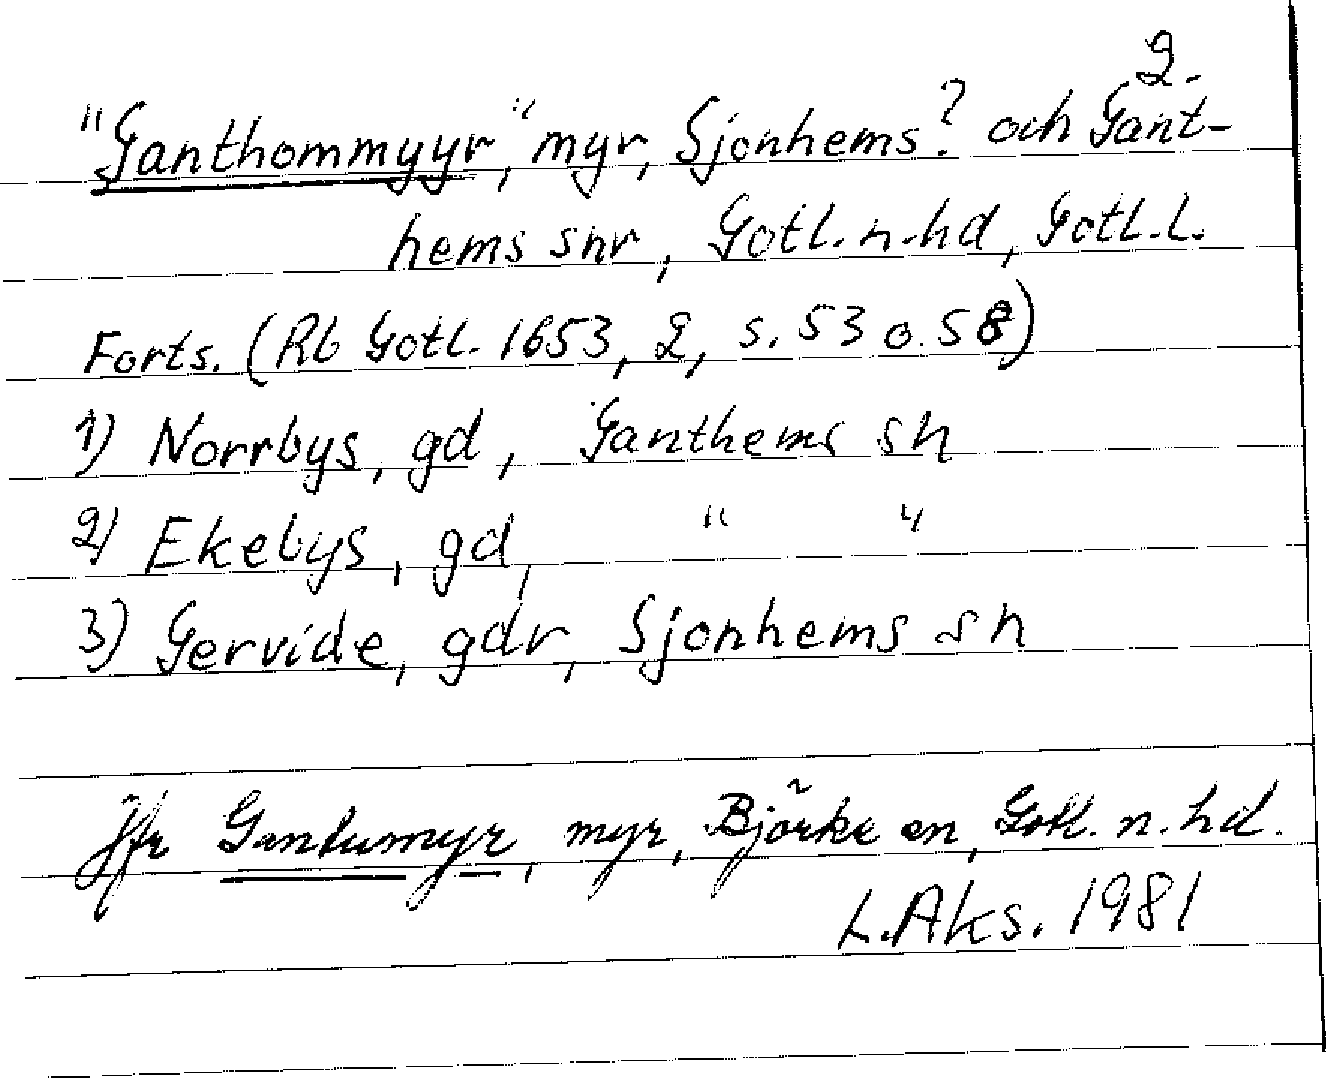 2.
"Ganthommyyr", myr, Sjonhems? och Gant-
hems snr, Gotl. n. hd, Gotl. l.
Forts. (Rb Gotl. 1653, 2, s. 53 o. 58)
1) Norrbys, gd, Ganthems sn
2) Ekebys, gd, " "
3) Gervide, gdr, Sjonhems sn
Jfr Gantumyr, myr, Björke sn, Gotl. n. hd.
L. Aks. 1981